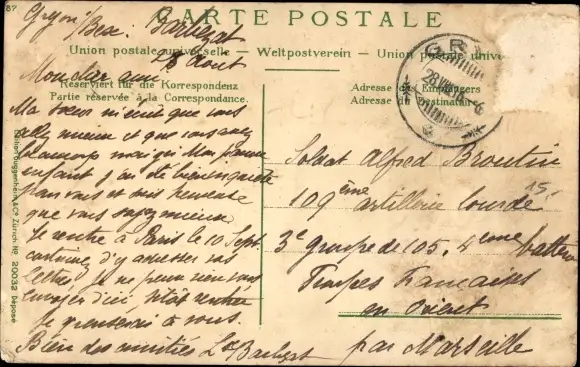 CARTE POSTALE
Union postale universelle — Weltpostverein — Union postale unive
Reserviert für die Korrespondenz
Partie réservée à la Correspondance.
Adresse des Empfängers
Adresse du Destinataire
Gryon/Bex. Barbezat
28 Août
Mon cher ami
Ma sœur m'écrit que vous
allez mieux et que vous avez
beaucoup maigri Mon pauvre
enfant j'ai été bien inquiète
vous et suis heureuse
que vous soyez mieux
Je rentre à Paris le 10 Sept.
continuez d'y adresser vos
lettres Je ne peux rien vous
envoyer d'ici, sitôt rentrée
Je penserai à vous.
Bien des amitiés L. Barbezat
Soldat Alfred Broutin
109ème artillerie lourde
15
3e groupe de 105. 4eme batterie
Troupes Françaises
en Orient
par Marseille
GR
28 VIII
Guggenheim & Co., Zürich No. 20032 Déposé